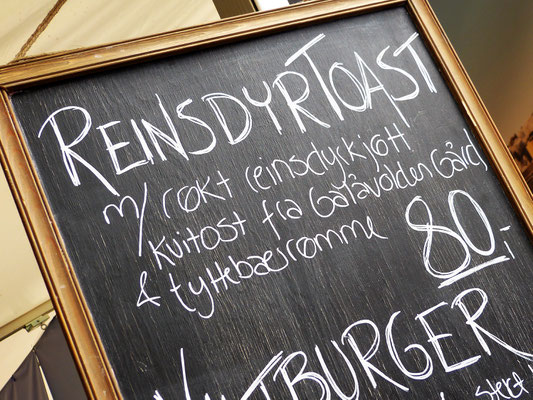 REINSDYRTOAST
m/ røkt reinsdyrkjøtt
kvitost fra Galåvolden Gård
& tyttebærrømme
80,-
BURGER